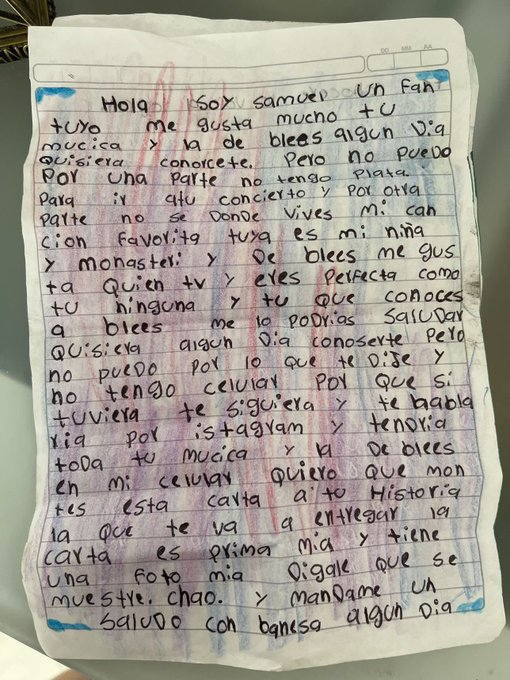 DD MM AA
Hola soy samuel un fan
tuyo me gusta mucho tu
mucica y la de blees algun Dia
Quisiera conorcete. Pero no puedo
por una parte no tengo plata
para ir atu concierto y por otra
parte no se donde vives mi can
cion favorita tuya es mi niña
y monasteri y De blees me gus
ta Quien tv y eres perfecta como
tu ninguna y tu que conoces
a blees me lo podrias saludar
Quisiera algun Dia conoserte pero
no puedo por lo que te Dije y
no tengo celular por que si
tuviera te siguiera y te habla
ria por istagram y tendria
toda tu mucica y la De blees
en mi celular quiero que mon
tes esta carta a tu Historia
la que te va a entregar la
carta es prima mia y tiene
una foto mia Digale que se
muestre. chao. y manDame un
saluDo con banesa algun Dia